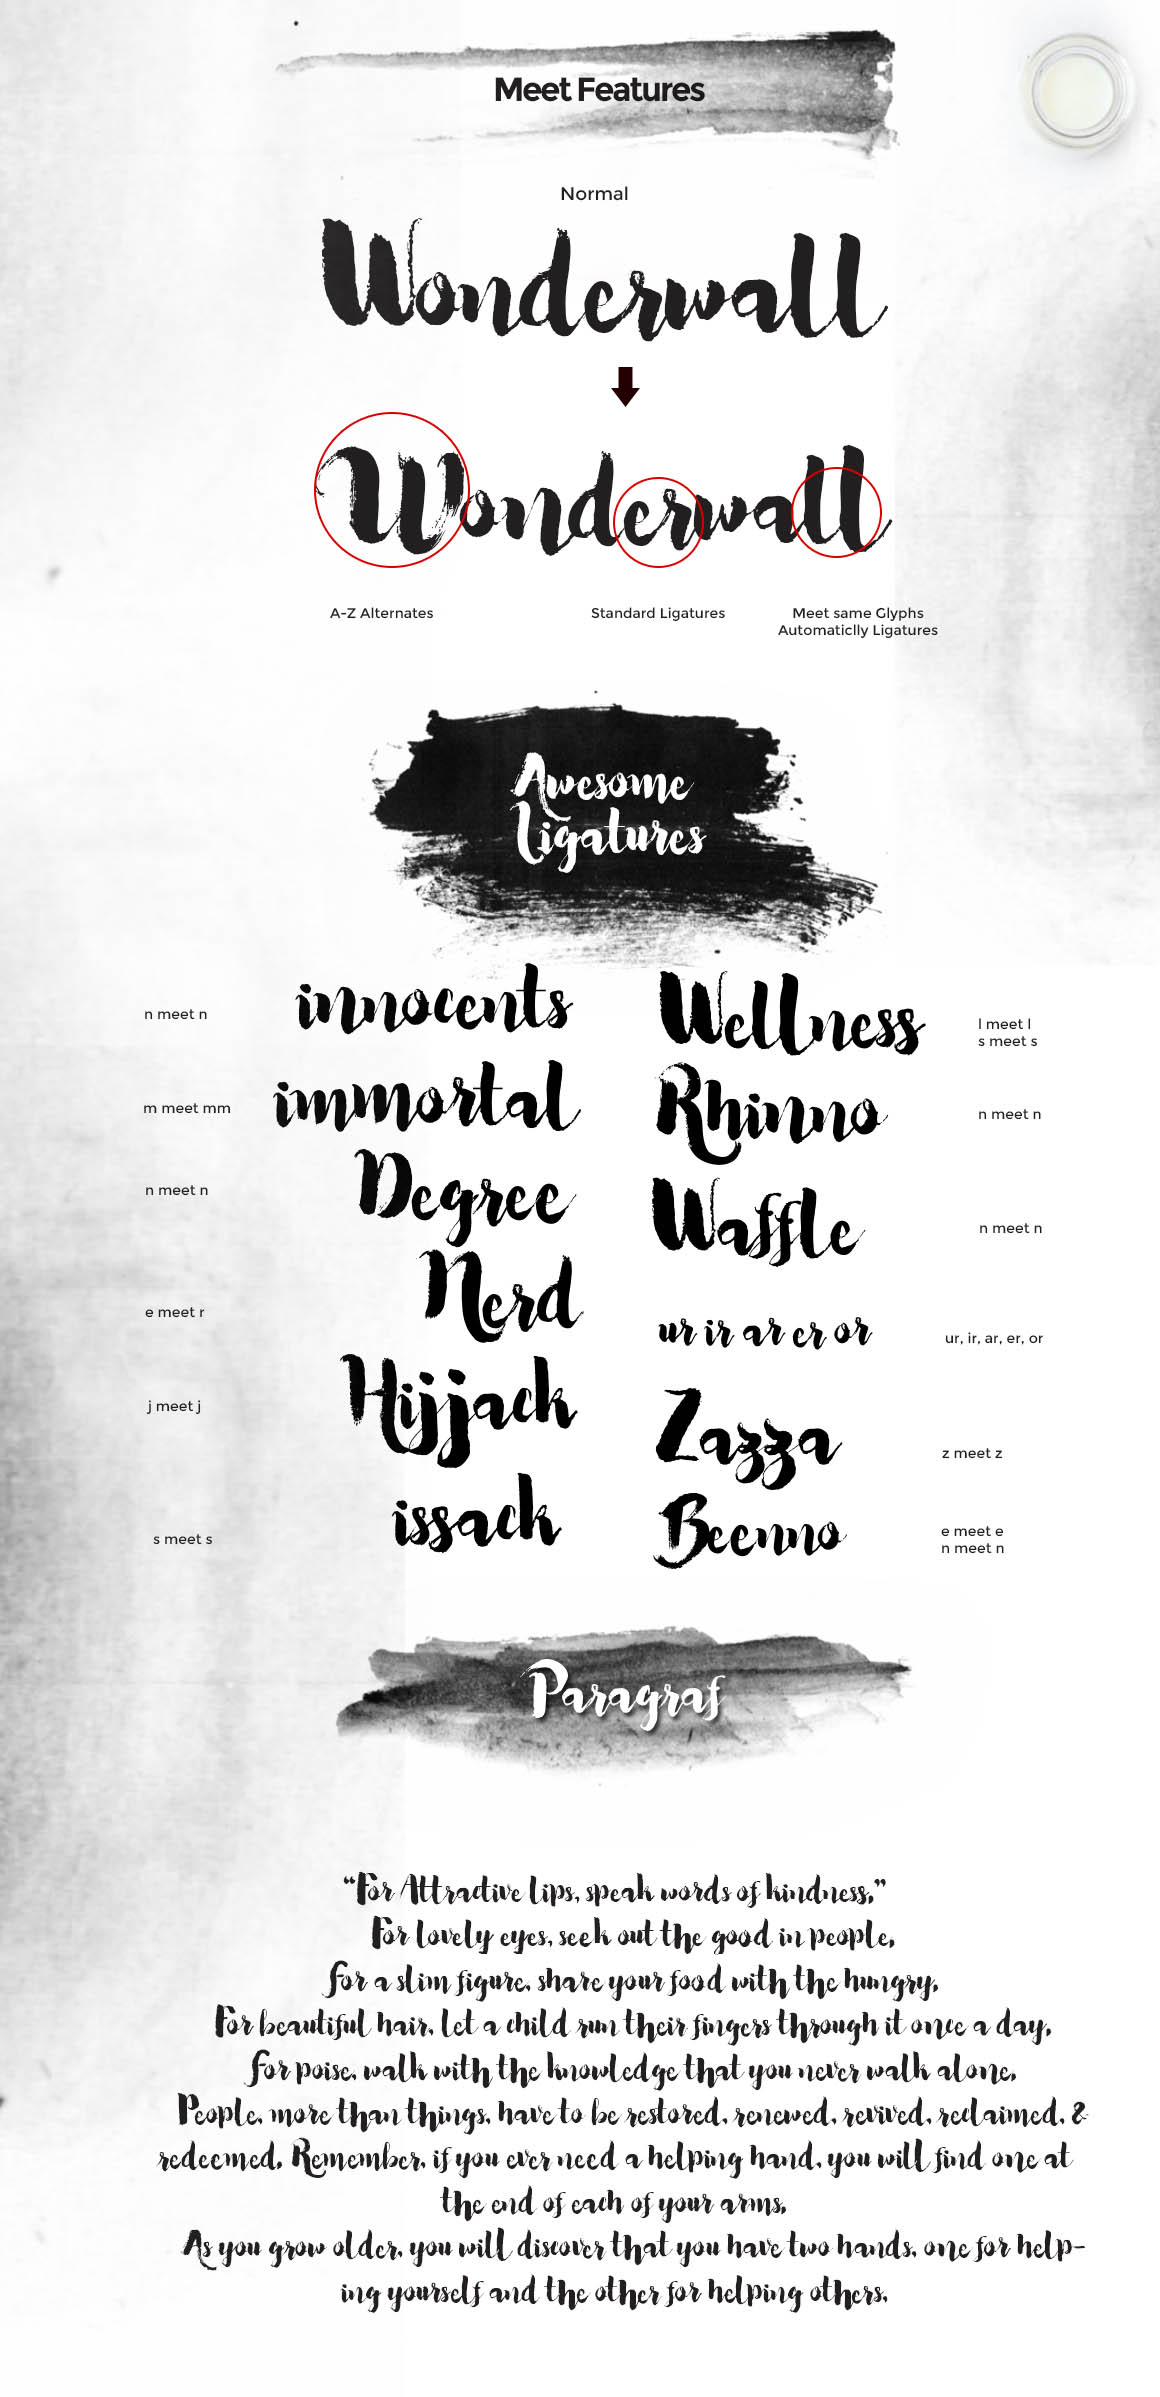 Meet Features
Normal
Wonderwall
Wonderwall
A-Z Alternates
Standard Ligatures
Meet same Glyphs
Automaticlly Ligatures
Awesome
Ligatures
n meet n
innocents
m meet mm
immortal
n meet n
Degree
e meet r
Nerd
j meet j
Hijjack
s meet s
issack
Wellness
l meet l
s meet s
Rhinno
n meet n
Waffle
n meet n
ur ir ar er or
ur, ir, ar, er, or
Zazza
z meet z
Beenno
e meet e
n meet n
Paragraf
“For Attractive lips, speak words of kindness.”
For lovely eyes, seek out the good in people.
for a slim figure, share your food with the hungry.
For beautiful hair, let a child run their fingers through it once a day.
for poise, walk with the knowledge that you never walk alone.
People, more than things, have to be restored, renewed, revived, reclaimed, &
redeemed. Remember, if you ever need a helping hand, you will find one at
the end of each of your arms.
As you grow older, you will discover that you have two hands, one for help-
ing yourself and the other for helping others.